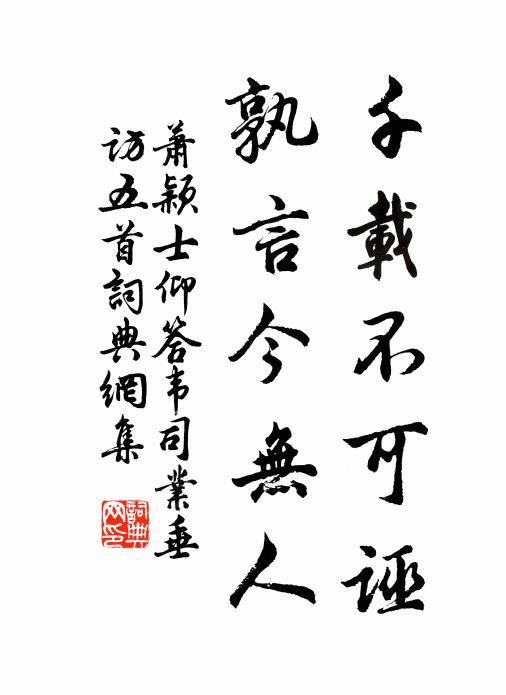 千載不可誣
孰言今無人
蕭穎士仰答韦司業垂
访五首詞典網集
詞典
网印